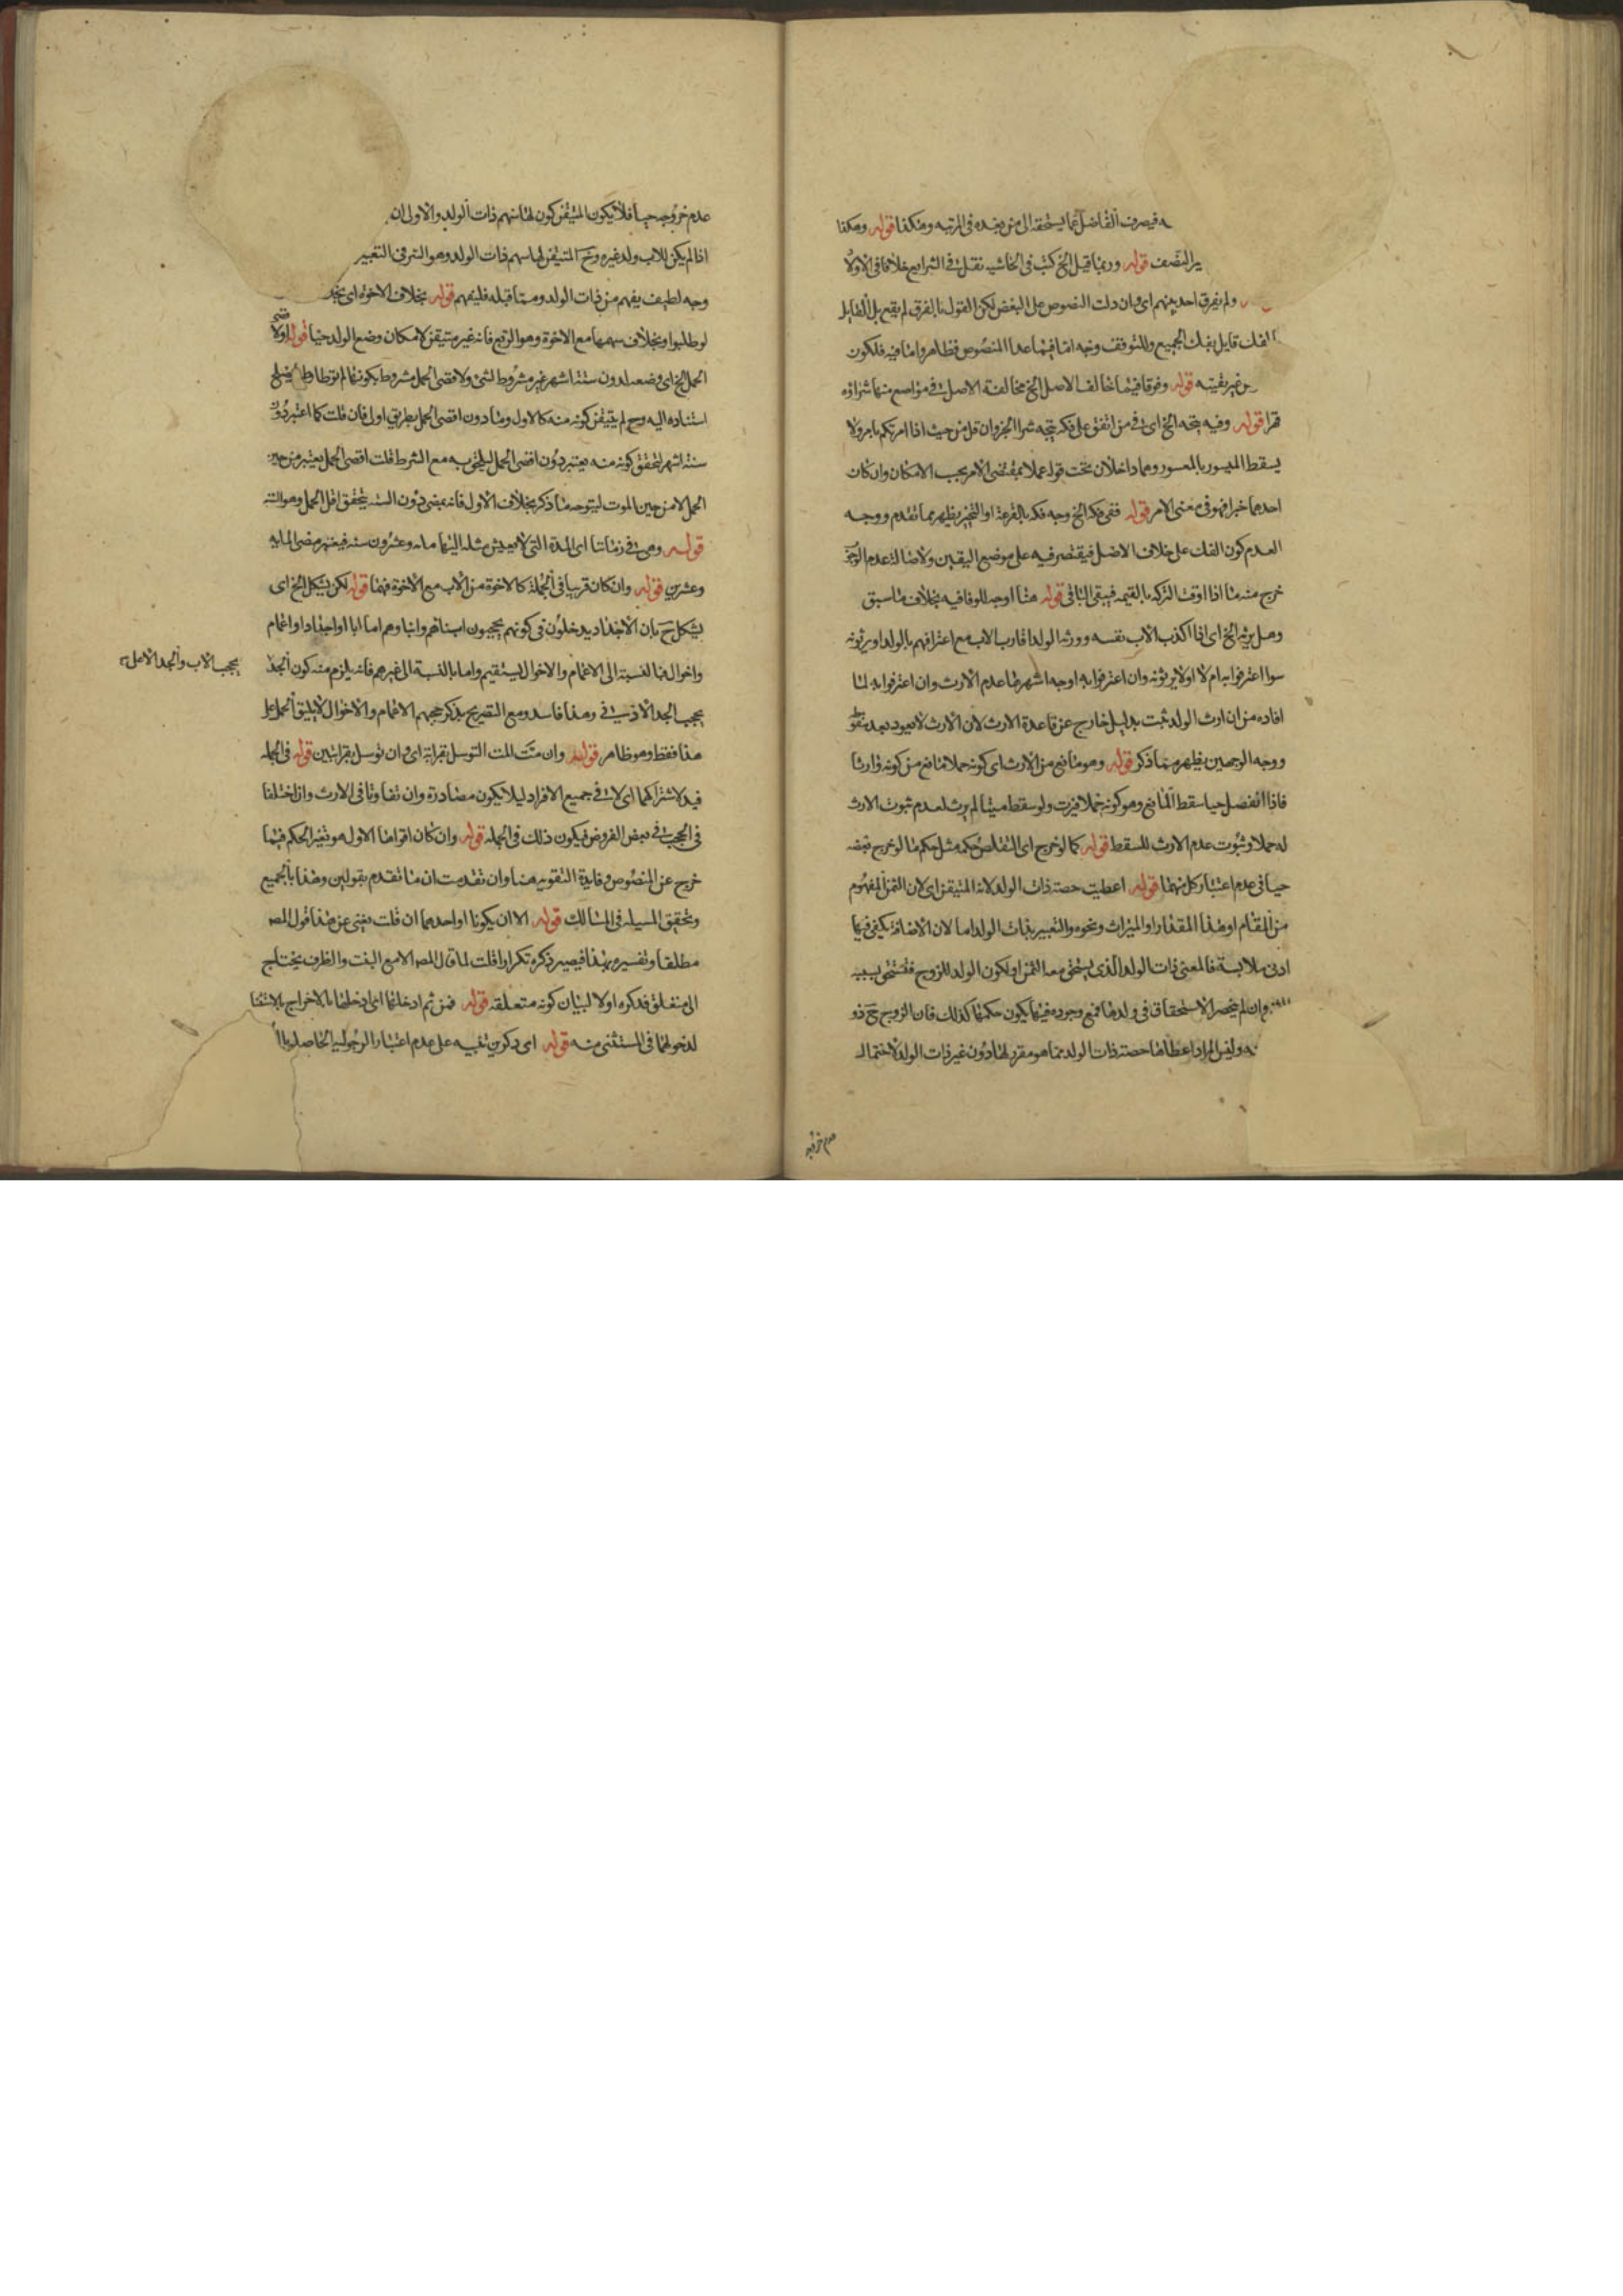 فيصرف الفاضل عما يستحقه الى من بعده فى المرتبة وهكذا قوله وهكذا
النصف قوله وربما قيل الخ كتب فى الحاشيه نقل فى الشرايع خلافا فى الاولاد
ولم يفرق احد بينهم اى وان دلت النصوص على البعض لكن القول بالفرق لم يقع بل القايل
الفك قايل بفك الجميع وللتوقف وجه اما فيما عدا المنصوص فظاهر واما فيه فلكون
من غير بقيته قوله وفوقا فيما خالف الاصل الخ مخالفة الاصل فى مواضع منها شراؤه
قهرا قوله وفيه يتجه الخ اى فى من اتفق على فكه يتجه شراء الجزء وان قل من حيث اذا امرتكم بامر ولا
يسقط الميسور بالمعسور وهما داخلان تحت قوله عملا بمقتضى الامر بحسب الامكان وان كان
احدهما خبرا فهو فى معنى الامر قوله ففى فكه الخ وجه فكه بالقرعة او التخيير يظهر مما تقدم ووجه
العدم كون الفك على خلاف الاصل فيقتصر فيه على موضع اليقين ولاصالة عدم الوجوب
خرج منه ما اذا اوفت التركه بالقيمه فيبقى الباقى قوله هنا اوجه للوفا فيه بخلاف ما سبق
وهل يرثه الخ اى اذا اكذب الاب نفسه وورثه الولد اقارب الاب مع اعترافهم بالولد او يرثونه
سوا اعترفوا به ام لا او لا يرثونه وان اعترفوا به اوجه اشهرها عدم الارث وان اعترفوا به لما
افاده من ان ارث الولد ثبت بدليل خارج عن قاعدة الارث لان الارث لا يعود بعد سقوطه
ووجه الوجهين يظهر مما ذكر قوله وهو مانع من الارث اى كونه حملا مانع من كونه وارثا
فاذا انفصل حيا سقط المانع وهو كونه حملا فيرث ولو سقط ميتا لم يرث لعدم ثبوت الارث
له حملا وثبوت عدم الارث للسقط قوله كما لو خرج اى التقلص حكمه مثل حكم ما لو خرج بعضه
حيا فى عدم اعتبار كل منهما قوله اعطيت حصة ذات الولد لانه المتيقن اى لان الثمن المفهوم
من المقام او هذا المقدار او الميراث ونحوه والتعبير بذات الولد اما لان الاضافة يكفى فيها
ادنى ملابسة فالمعنى ذات الولد الذى يستحق معه الثمن او لكون الولد للزوج فتستحق بسببه
وان لم ينحصر الاستحقاق فى ولدها فمع وجوده فيها يكون حكمها كذلك فان الزوج ح ذو
وليس المراد اعطاها حصة ذات الولد مما هو مقرر لها دون غير ذات الولد لاحتمال
عدم خروجه
عدم خروجه حيا فلا يكون المتيقن كون لها سهم ذات الولد والاولى ان
اذا لم يكن للاب ولد غيره وح المتيقن لها سهم ذات الولد وهو السر فى التعبير
وجه لطيف يفهم من ذات الولد ومما قبله فليفهم قوله بخلاف الاخوة اى
لو طلبوا وبخلاف سهمها مع الاخوة وهو الربع فانه غير متيقن لامكان وضع الولد حيا قوله ولاقصى
الحمل الخ اى وضعه لدون ستة اشهر غير مشروط لشئ ولاقصى الحمل مشروط بكونها لم توطا وطا يصلح
استناده اليه وح لم يتيقن كونه منه كالاول وما دون اقصى الحمل بطريق اولى فان قلت كما اعتبر دون
ستة اشهر لتحقق كونه منه يعتبر دون اقصى الحمل ليلحق به مع الشرط قلت اقصى الحمل يعتبر من حين
الحمل لا من حين الموت ليتوجه ما ذكر بخلاف الاول فانه بمضى دون الستة يتحقق اقل الحمل وهو الستة
قوله وهى فى زماننا اى المدة التى لا يعيش مثله اليها مائه وعشرون سنة فيعتبر مضى المايه
وعشرين قوله وان كان قريبا فى الجملة كالاخوة من الاب مع الاخوة فهما قوله لكن يشكل الخ اى
يشكل ح بان الاجداد يدخلون فى كونهم يحجبون ابناءهم وابناؤهم اما ابا او اجدادا او اعمام
واخوال فبالنسبة الى الاعمام والاخوال يستقيم واما بالنسبة الى غيرهم فانه يلزم منه كون الجد
يحجب الاب والجد الاعلى
يحجب الجد الادنى وهذا فاسد ومع التصريح بذكر حجبهم الاعمام والاخوال لا يليق الحمل على
هذا فقط وهو ظاهر قوله وان متت المت التوسل بقرابة اى وان توسل بقرابتين قوله فى الجمله
قيد لاشتراكهما اى لا فى جميع الافراد ليلا يكون مصادرة وان تفاوتا فى الارث وان اختلفا
فى الحجب فى بعض الفروض فيكون ذلك فى الجمله قوله وان كان اقواها الاول هو تغير الحكم فيما
خرج عن المنصوص وفايدة التقوية هنا وان تقدمت ان ما تقدم بقولين وهذا بالجميع
وتحقيق المسيله فى المسالك قوله الا ان يكونا او احدهما ان قلت يغنى عن هذا قول المص
مطلقا وتفسيره بهذا فيصير ذكره تكرارا قلت لما قال المص الا مع البنت والظرف يحتاج
الى متعلق فذكره اولا لبيان كونه متعلقه قوله فمن ثم ادخلها اى ادخلها بالاخراج بالاستثنا
لدخولها فى المستثنى منه قوله اى ذكر من تنبيه على عدم اعتبار الرجوليه الحاصله